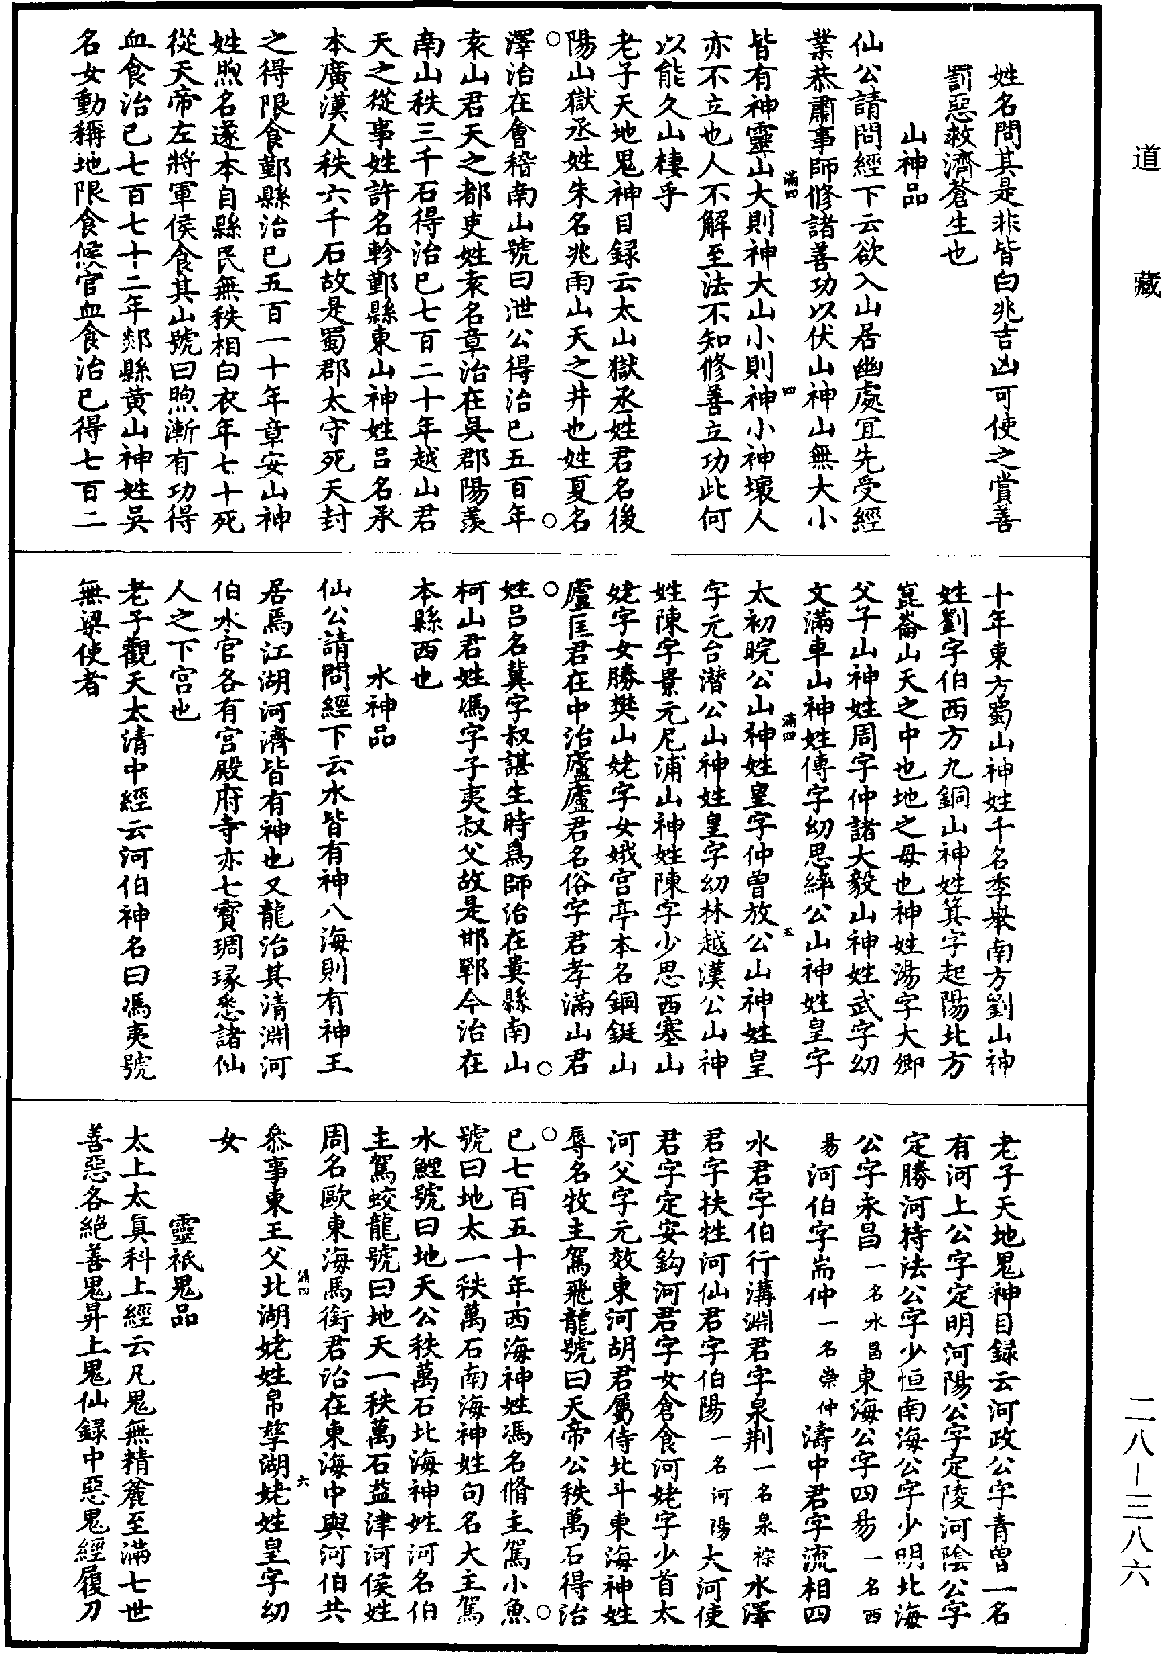 道藏
姓名問其是非皆白兆吉凶可使之賞善
罰惡救濟蒼生也
山神品
仙公請問經下云欲入山居幽處宜先受經
業恭肅事師修諸善功以伏山神山無大小
皆有神靈山大則神大山小則神小神壞人
亦不立也人不解至法不知修善立功此何
以能久山棲乎
老子天地鬼神目録云太山獄丞姓君名後
陽山獄丞姓朱名兆雨山天之井也姓夏名
澤治在會稽南山號曰泄公得治已五百年
袁山君天之都吏姓袁名章治在吳郡陽羨
南山秩三千石得治已七百二十年越山君
天之從事姓許名軫鄞縣東山神姓呂名承
本廣漢人秩六千石故是蜀郡太守死天封
之得限食鄞縣治已五百一十年章安山神
姓煦名遂本自縣民無秩相白衣年七十死
從天帝左將軍侯食其山號曰煦漸有功得
血食治已七百七十二年郯縣黄山神姓吳
名女動稱地限食候官血食治已得七百二
十年東方蜀山神姓千名季舉南方劉山神
姓劉字伯西方九銅山神姓箕字起陽北方
崑崙山天之中也地之母也神姓湯字大卿
父子山神姓周字仲諸大毅山神姓武字幼
文滿車山神姓傅字幼思繂公山神姓皇字
太初晥公山神姓皇字仲曾放公山神姓皇
字元台潛公山神姓皇字幼林越漢公山神
姓陳字景元尼浦山神姓陳字少思西塞山
姥字女勝樊山姥字女娥宫亭本名銅鋌山
廬匡君在中治廬廬君名俗字君孝滿山君
姓呂名龔字叔諶生時爲師治在婁縣南山
柯山君姓馮字子夷叔父故是邯鄲令治在
本縣西也
水神品
仙公請問經下云水皆有神八海則有神王
居焉江湖河濟皆有神也又龍治其清淵河
伯水官各有宮殿府寺亦七寶琱琢悉諸仙
人之下宮也
老子觀天太清中經云河伯神名曰馮夷號
無梁使者
老子天地鬼神目録云河政公字青曾一名
有河上公字定明河陽公字定陵河陰公字
定勝河持法公字少恒南海公字少明北海
公字永昌一名水昌東海公字四昜一名西
昜河伯字耑仲一名崇仲濤中君字流相四
水君字伯行溝淵君字泉荆一名泉棕水澤
君字扶牲河仙君字伯陽一名河陽大河使
君字定安鈎河君字女倉食河姥字少首太
河父字元效東河胡君屬侍北斗東海神姓
辱名牧主駕飛龍號曰天帝公秩萬石得治
已七百五十年西海神姓馮名脩主駕小魚
號曰地太一秩萬石南海神姓句名大主駕
水鯉號曰地天公秩萬石北海神姓河名伯
主駕蛟龍號曰地天一秩萬石益津河侯姓
周名歐東海馬銜君治在東海中與河伯共
叅事東王父北湖姥姓帛孳湖姥姓皇字幼
女
靈祇鬼品
太上太真科上經云凡鬼無精麄至滿七世
善惡各絶善鬼昇上鬼仙録中惡鬼經履刀
二八—三八六